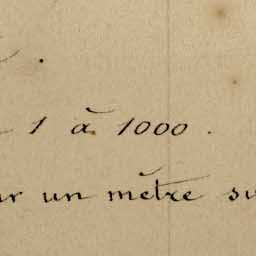 1 à 1000.
un mètre